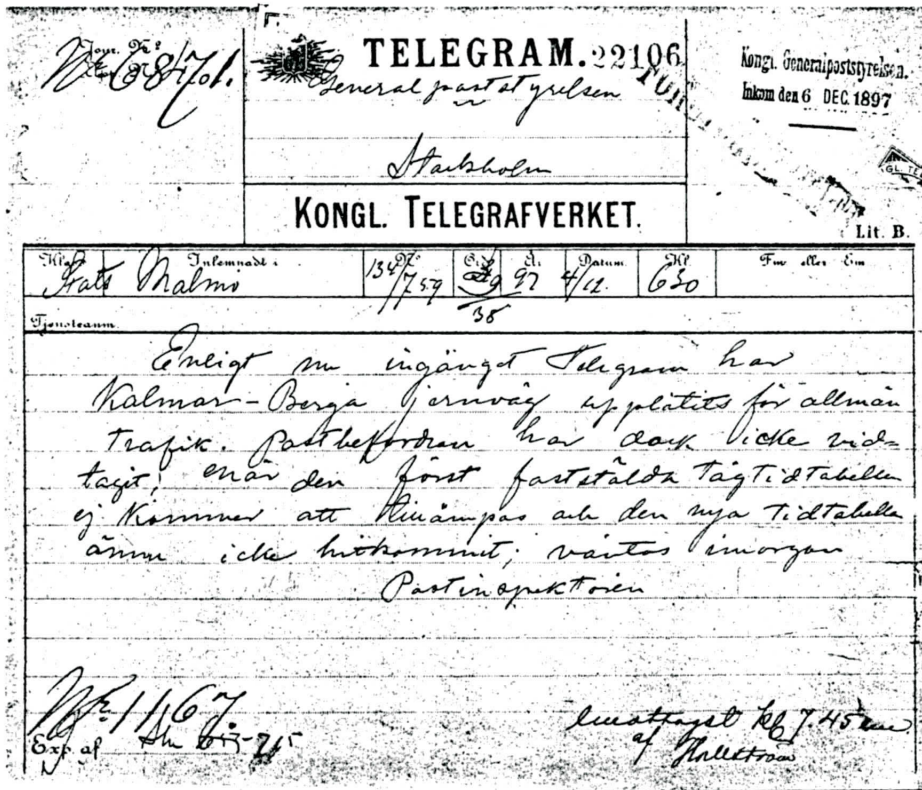 Jour. Nr
TELEGRAM. 22106
Generalpoststyrelsen
Stockholm
KONGL. TELEGRAFVERKET.
Kongl. Generalpoststyrelsen.
Inkom den 6 DEC. 1897
Lit. B.
Inlemnadt i Nr År Datum Kl. Fm eller Em
Malmö 97 4/12 630
38
Enligt nu ingånget Telegram har
Kalmar-Berga jernväg upplåtits för allmän
trafik. Postbefordran har dock icke vid=
tagit; enär den först faststälda tågtidtabellen
ej kommer att tillämpas och den nya tidtabellen
ännu icke hitkommit; väntas imorgon
Postinspektoren
No 1167
Exp. af
emottaget kl 7.45
af Hallström